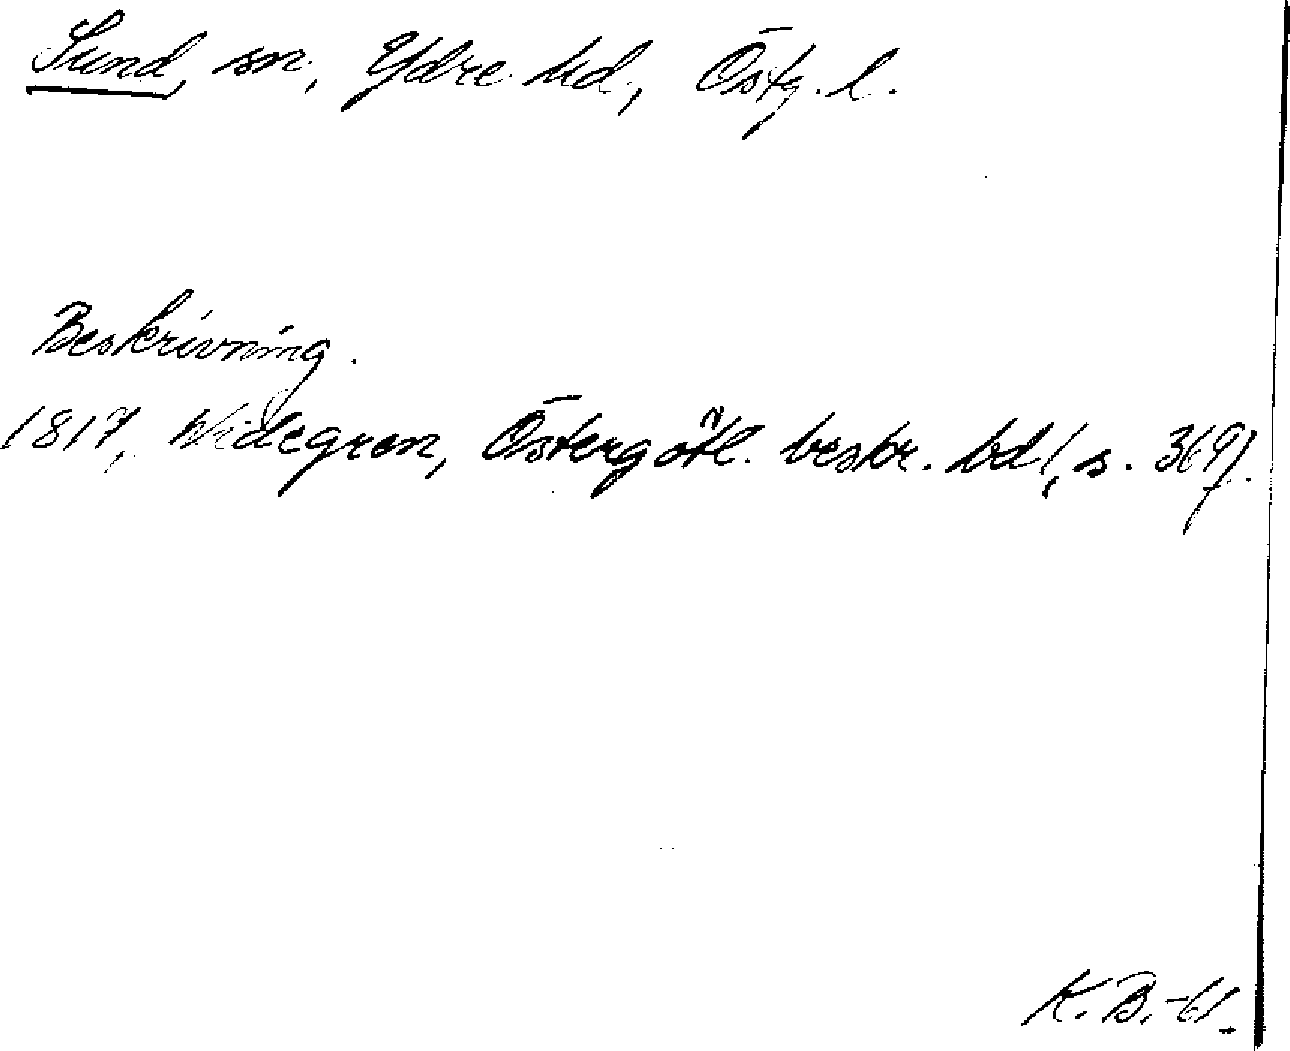 Sund, sn, Ydre hd, Östg. l.
Beskrivning.
1817, Widegren, Östergötl. beskr. bd 1, s. 369f.
K. B. -61.